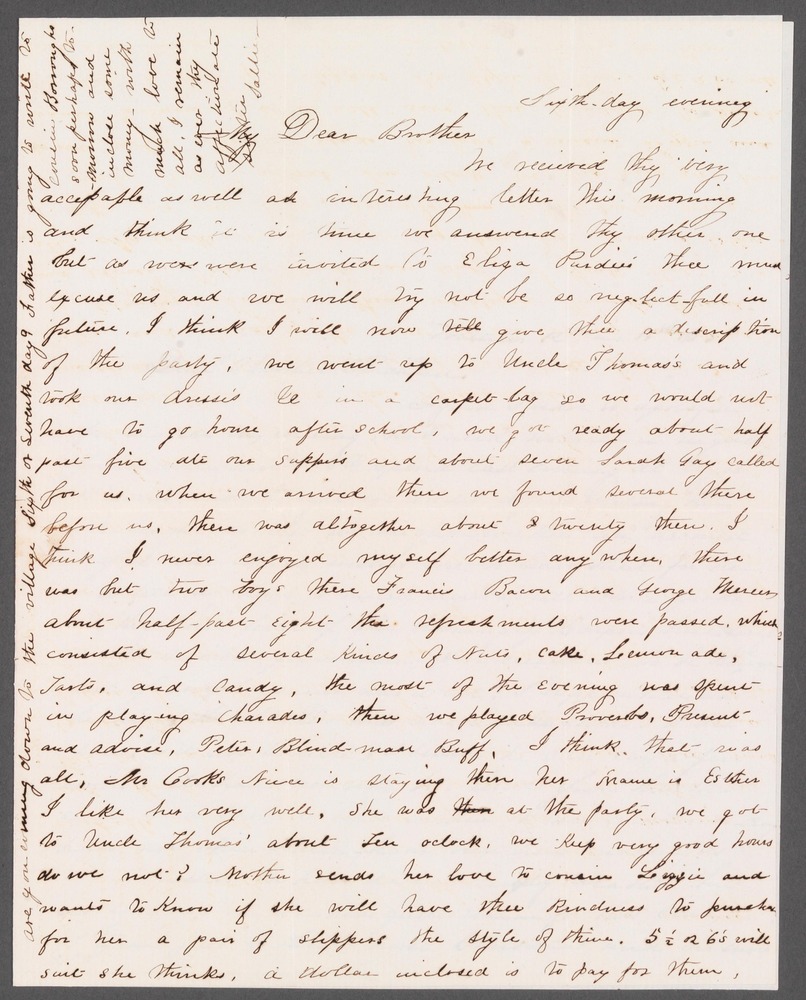 Sixth-day evening
My Dear Brother
We recieved thy very
acceptable as well as interesting letter this morning
and think it is time we answered thy other one
but as were were invited to Eliza Purdies thee must
excuse us and we will try not be so neglect-full in
future. I think I will now tell give thee a description
of the party, we went up to Uncle Thomas's and
took our dresses &c in a carpet-bag so we would not
have to go home after school, we got ready about half
past five ate our suppers and about seven Sarah Gay called
for us. when we arrived there we found several there
before us, there was altogether about twenty there. I
think I never enjoyed myself better any where, there
was but two boys there Francis Bacon and George Mercer
about half-past eight the refreshments were passed, which
consisted of several kinds of Nuts, cake, Lemon ade,
Tarts, and Candy, the most of the evening was spent
in playing charades, then we played Proverbs, Present
and advise, Peter, Blind-man Buff, I think that was
all, Mr Cooks Niece is staying there her name is Esther
I like her very well, she was then at the party, we got
to Uncle Thomas' about Ten oclock, we keep very good hours
do we not? Mother sends her love to cousin Lizzie and
wants to know if she will have thee kindness to purchase
for her a pair of slippers the style of thine. 5½ or 6s will
suit she thinks, a dollar inclosed is to pay for them,
are you coming down to the village Sixth or Seventh day? Father is going to write to
cousin Borroughs
soon perhaps to-
-morrow and
inclose some
money - with
much love to
all, I remain
as ever thy
affectionate
Sister Sallie